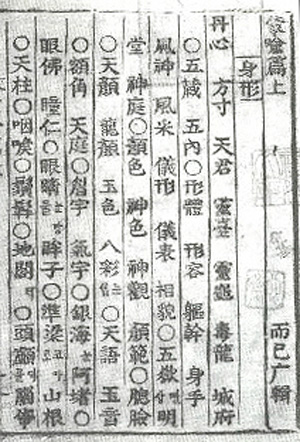 蒙喩篇上 而已广輯
身形
丹心 方寸 天君 靈臺 靈龜 毒龍 城府
○五藏 五內○形體 形容 軀幹 身手
風神 風采 儀形 儀表 相貌○五嶽 明
堂 神庭○顔色 神色 神觀 顔範○腮臉
○天顔 龍顔 玉色 八彩 ○天語 玉音
○額角 天庭○眉宇 氣宇○銀海눈 阿堵○
眼佛 瞳仁○眼 眸子○準梁 山根
○天柱○咽喉○鬍 ○地閣 ○頭顱 腦